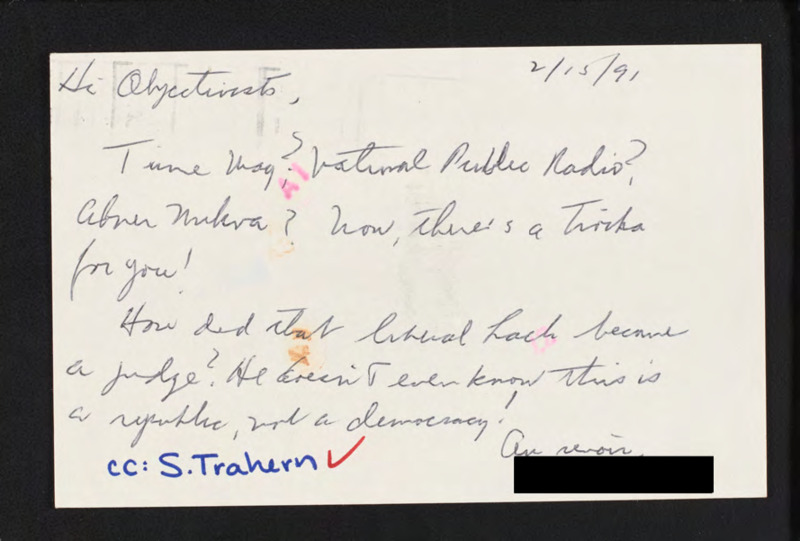 2/15/91
Hi Objectivists,
Time Mag? National Public Radio?,
Abner Mikva? Now, there's a troika
for you!
How did that liberal hack become
a judge? He doesn't even know this is
a republic, not a democracy!
Au revoir,
cc: S. Trahern ✓